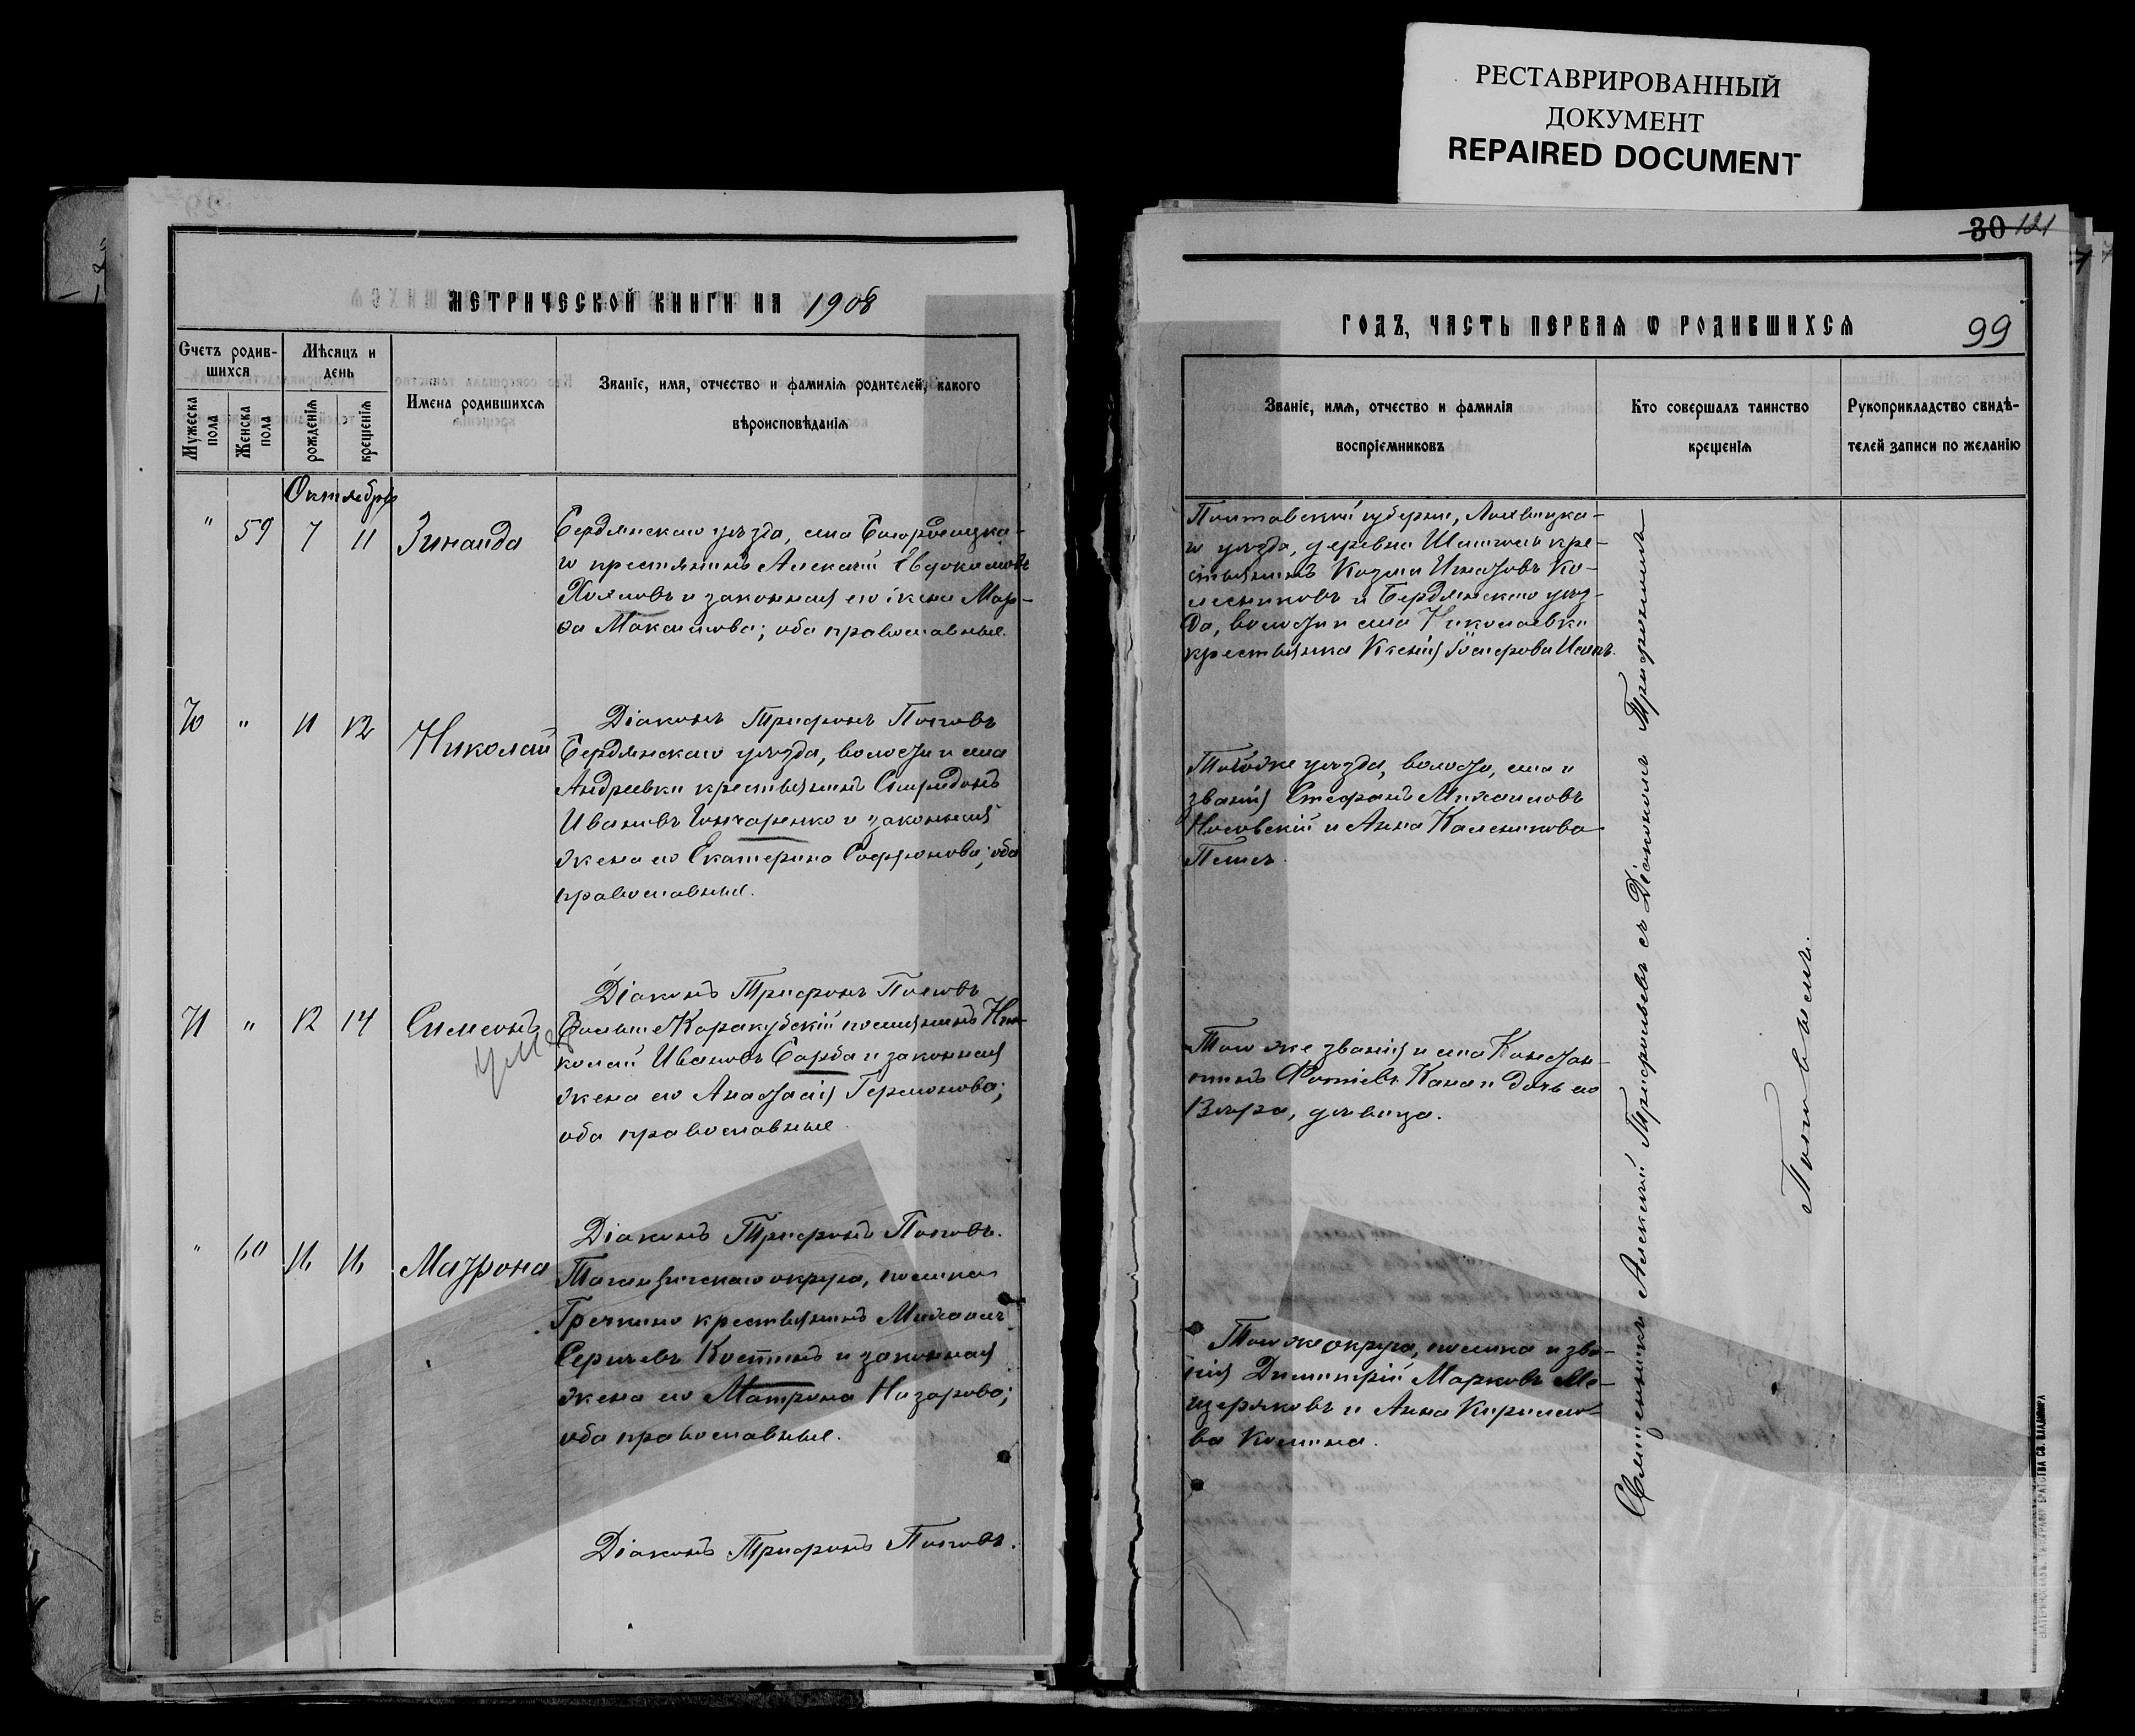 РЕСТАВРИРОВАННЫЙ
ДОКУМЕНТ
REPAIRED DOCUMENT
МЕТРИЧЕСКОЙ КНИГИ НА 1908
Счетъ родив-
шихся
Мѣсяцъ и
день
Имена родившихся
Званіе, имя, отчество и фамилія родителей, какого
вѣроисповѣданія
Мужеска пола
Женска пола
рожденія
крещенія
Октябрь
" 59 7 11 Зинаида
Бердянскаго уѣзда, села
го крестянинъ Алексѣй Евдокимовъ
и законная его жена Мар-
ѳа Максимова; оба православные.
Діаконъ Трифонъ Поповъ
70 " 11 12 Николай
Бердянскаго уѣзда, волости и села
Андреевки крестьянинъ Спиридонъ
Ивановъ Гончаренко и законная
жена его Екатерина Софронова; оба
православные.
Діаконъ Трифонъ Поповъ
71 " 12 14 Симеонъ
умер
Больше Каракубскій поселянинъ Ни-
колай Ивановъ Сарба и законная
жена его Анастасія Германова;
оба православные
Діаконъ Трифонъ Поповъ.
" 60 16 16 Матрона
Таганрогскаго округа, поселка
Греткино крестьянинъ Михаилъ
Сергѣевъ Костинъ и законная
жена его Матрона Назарова;
оба православные.
Діаконъ Трифонъ Поповъ.
30 121
ГОДЪ, ЧАСТЬ ПЕРВАЯ Ѡ РОДИВШИХСЯ
99
Званіе, имя, отчество и фамилія
воспріемниковъ
Кто совершалъ таинство
крещенія
Рукоприкладство свидѣ-
телей записи по желанію
Полтавской губерніи,
го уѣзда, деревни кре-
стьянинъ Козма Игнатовъ Ко-
лесниковъ и Бердянскаго уѣз-
да, волости и села Николаевки
крестьянка Ксенія
Того же уѣзда, волости, села и
званія Стефанъ Михаиловъ
Носовскій и Анна Каленикова
Того же званія и села Констан-
тинъ Фотіевъ Кана и дочь его
Вѣра, дѣвица.
Того же округа, поселка и зва-
нія Димитрій Марковъ Ме-
щеряковъ и Анна Кирилло-
ва Костина.
Священникъ Алексій Трифильевъ съ Діакономъ Трифономъ
Поповымъ.